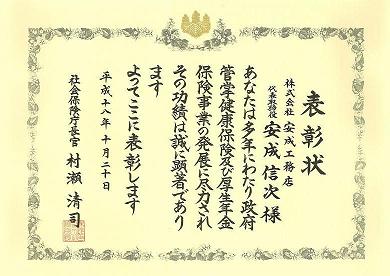 表彰状
株式会社 安成工務店
代表取締役 安成信次様
あなたは多年にわたり政府
管掌健康保険及び厚生年金
保険事業の発展に尽力され
その功績は誠に顕著であり
ます
よってここに表彰します
平成十八年十月二十日
社会保険庁長官 村瀬清司